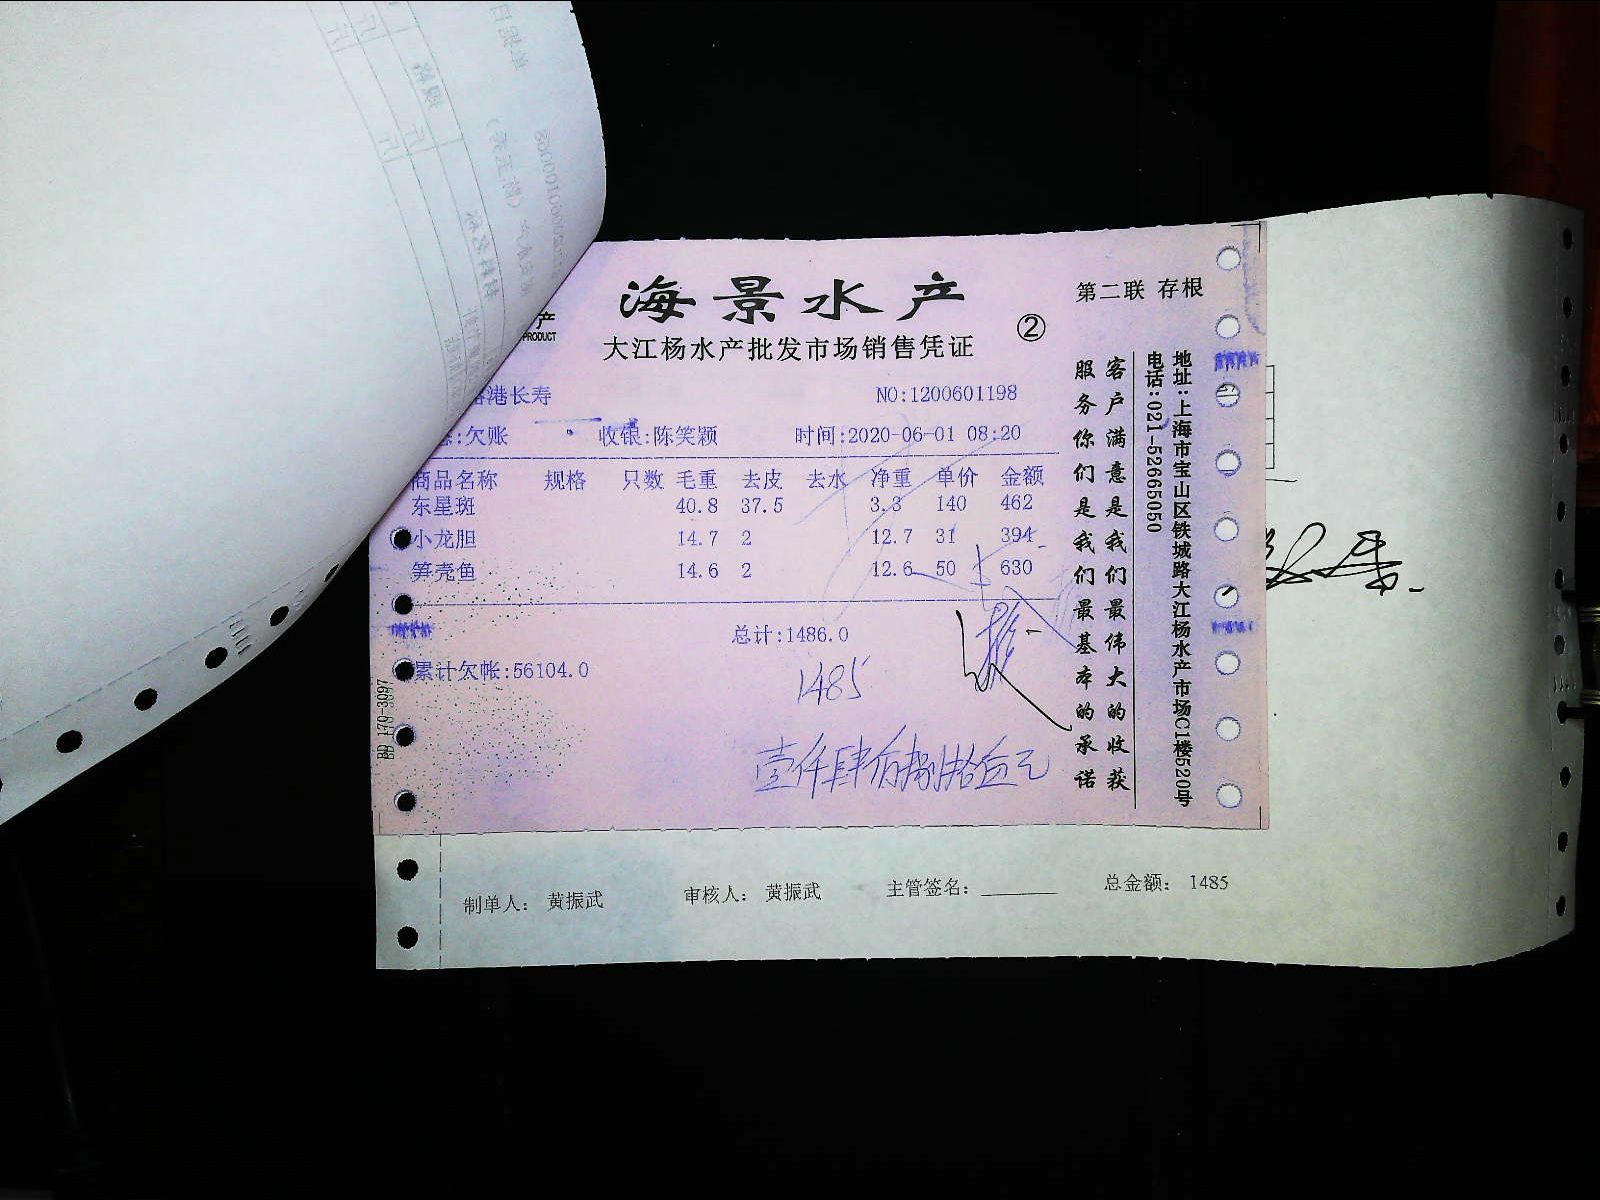 海景水产
大江杨水产批发市场销售凭证
②
第二联 存根
产
PRODUCT
港长寿
NO:1200601198
:欠账
收银:陈笑颖
时间:2020-06-01 08:20
商品名称 规格 只数 毛重 去皮 去水 净重 单价 金额
东星斑 40.8 37.5 3.3 140 462
小龙胆 14.7 2 12.7 31 394
笋壳鱼 14.6 2 12.6 50 630
总计:1486.0
累计欠帐:56104.0
1485
壹仟肆佰捌拾伍元
客户满意是我们最伟大的收获
服务你们是我们最基本的承诺
地址:上海市宝山区铁城路大江杨水产市场C1楼520号
电话:021-52665050
BD 170-3097
制单人: 黄振武 审核人: 黄振武 主管签名: 总金额: 1485